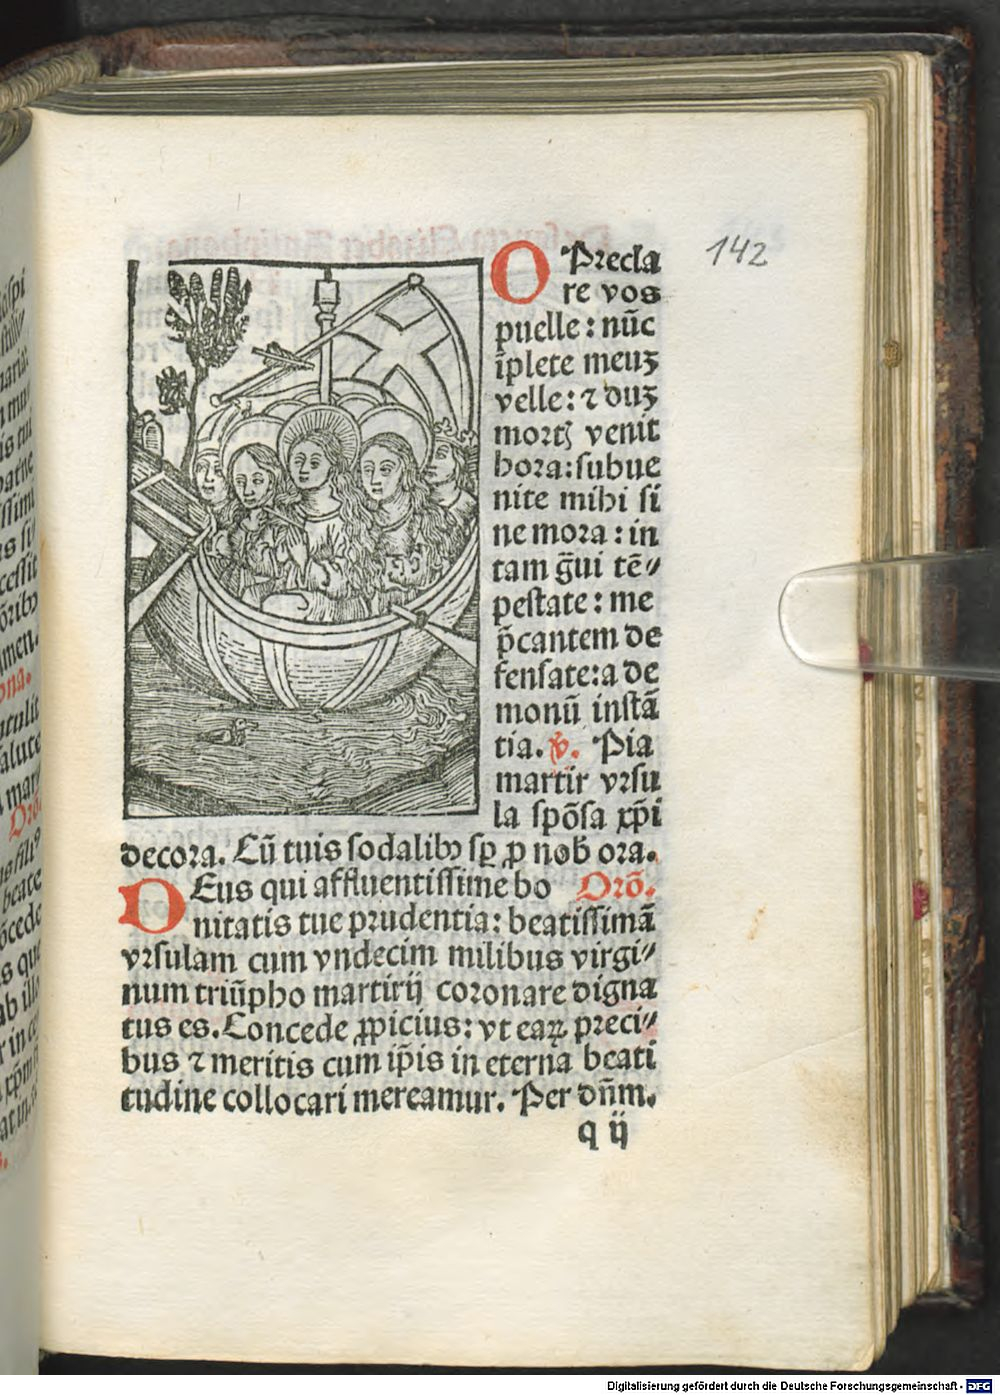 142
O Precla
re vos
puelle: nūc
īplete meuꝫ
velle: ⁊ duꝫ
mortꝭ venit
hora: subue
nite mihi si
ne mora: in
tam g̃ui tē⸗
pestate: me
p̄cantem de
fensate: a de
monū instā
tia. ℣. Pia
martir vrsu
la spōsa xp̄i
decora. Cū tuis sodalibꝰ sꝑ ꝓ nob̄ ora.
DEus qui affluentissime bo Orō.
nitatis tue prudentia: beatissimā
vrsulam cum vndecim milibus virgi⸗
num triūpho martirij coronare digna
tus es. Concede ꝓpicius: vt eaꝝ preci⸗
bus ⁊ meritis cum ip̄is in eterna beati
tudine collocari mereamur. Per dn̄m.
q ij
Digitalisierung gefördert durch die Deutsche Forschungsgemeinschaft - DFG